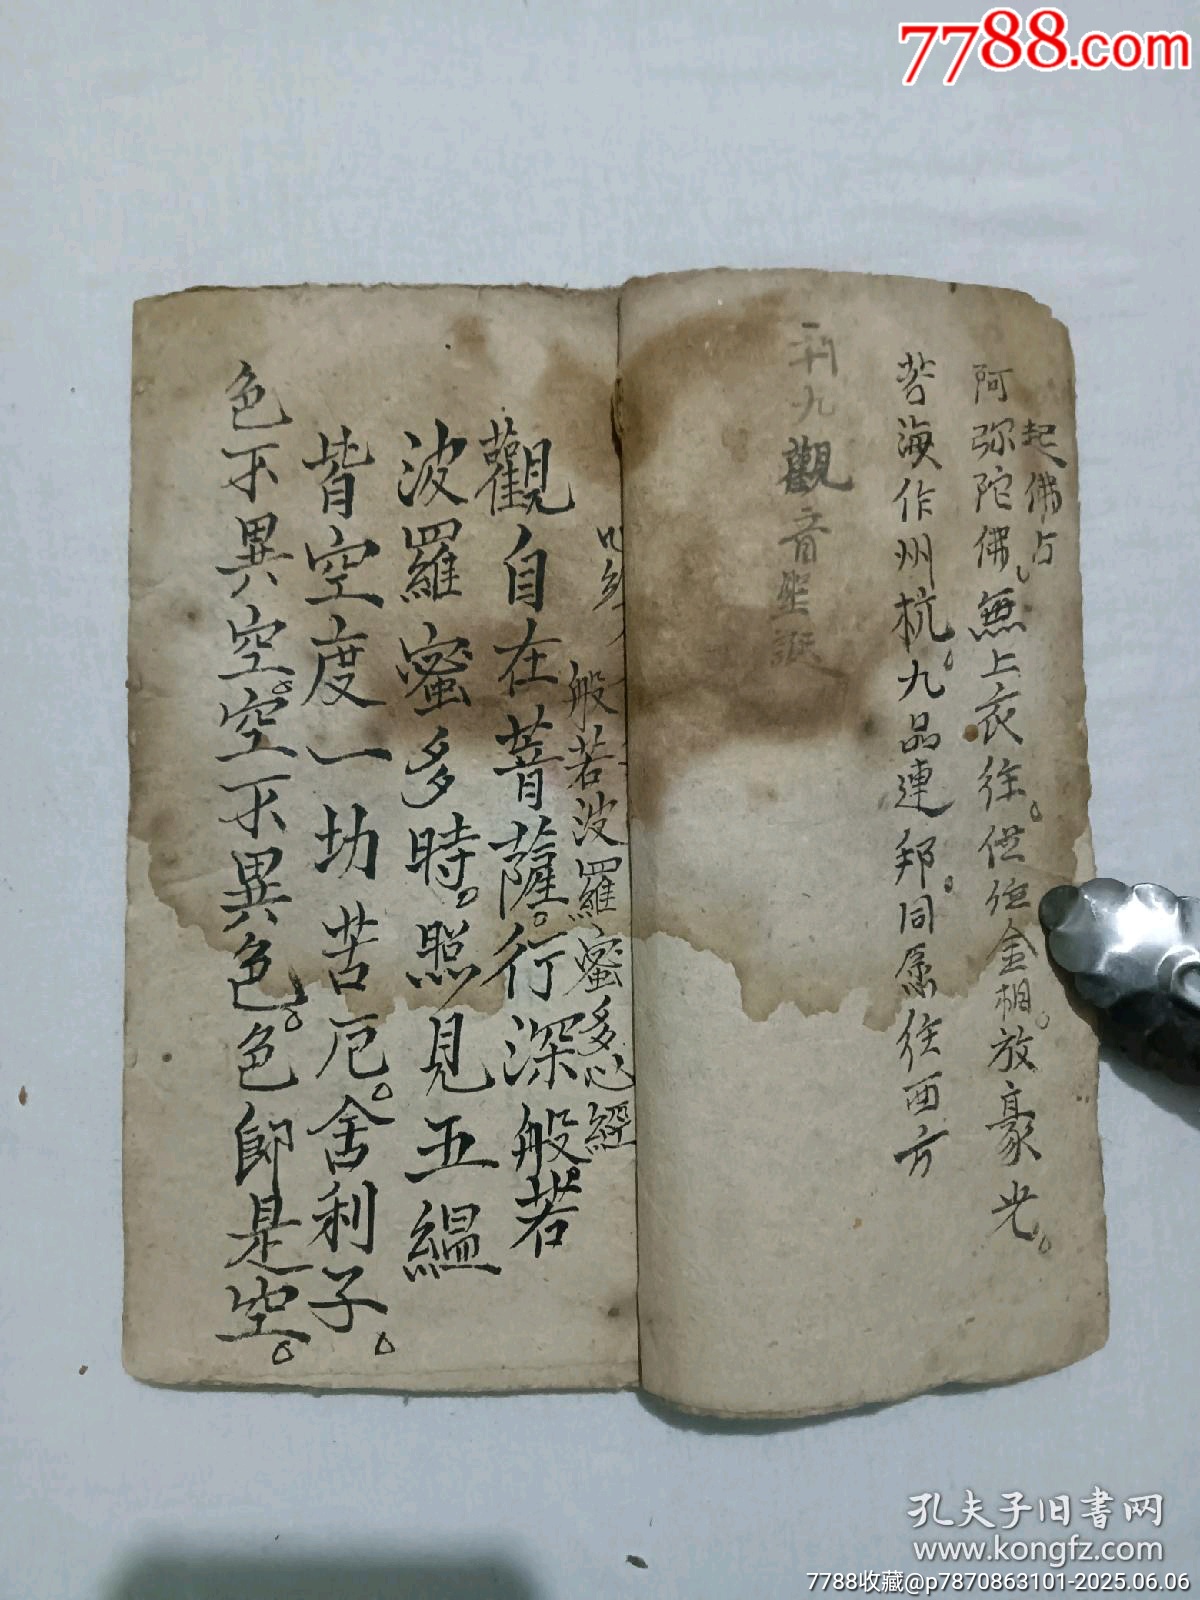 7788.com
起佛占
阿弥陀佛無上衣往。金相。放豪光。
苦海作州杭。九品連邦。同愿往西方
九觀音聖誕
般若波羅蜜多心經
觀自在菩薩。行深般若
波羅蜜多時。照見五縕
皆空度一切苦厄。舍利子。
色不異空。空不異色。色即是空。
孔夫子旧书网
www.kongfz.com
7788收藏@p7870863101-2025.06.06